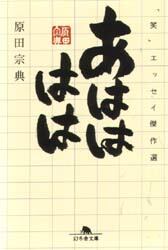 “笑”エッセイ傑作選
あはは
はは
原田宗典
幻冬舎文庫